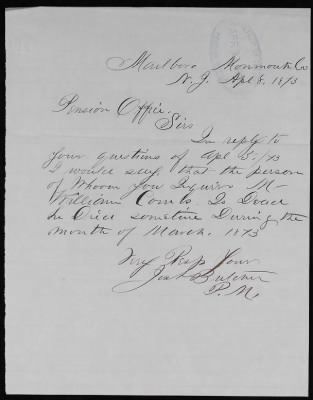 Marlboro Monmouth Co
N. J. Apl 8, 1873
Pension Office.
Sirs
In reply to
your questions of Apl 5/73
I would say that the person
of Whoom you Inquire Mr
William Combs. Is Dead
he Died sometime During the
month of March. 1873
Very Resp Your
Butcher
P. M.